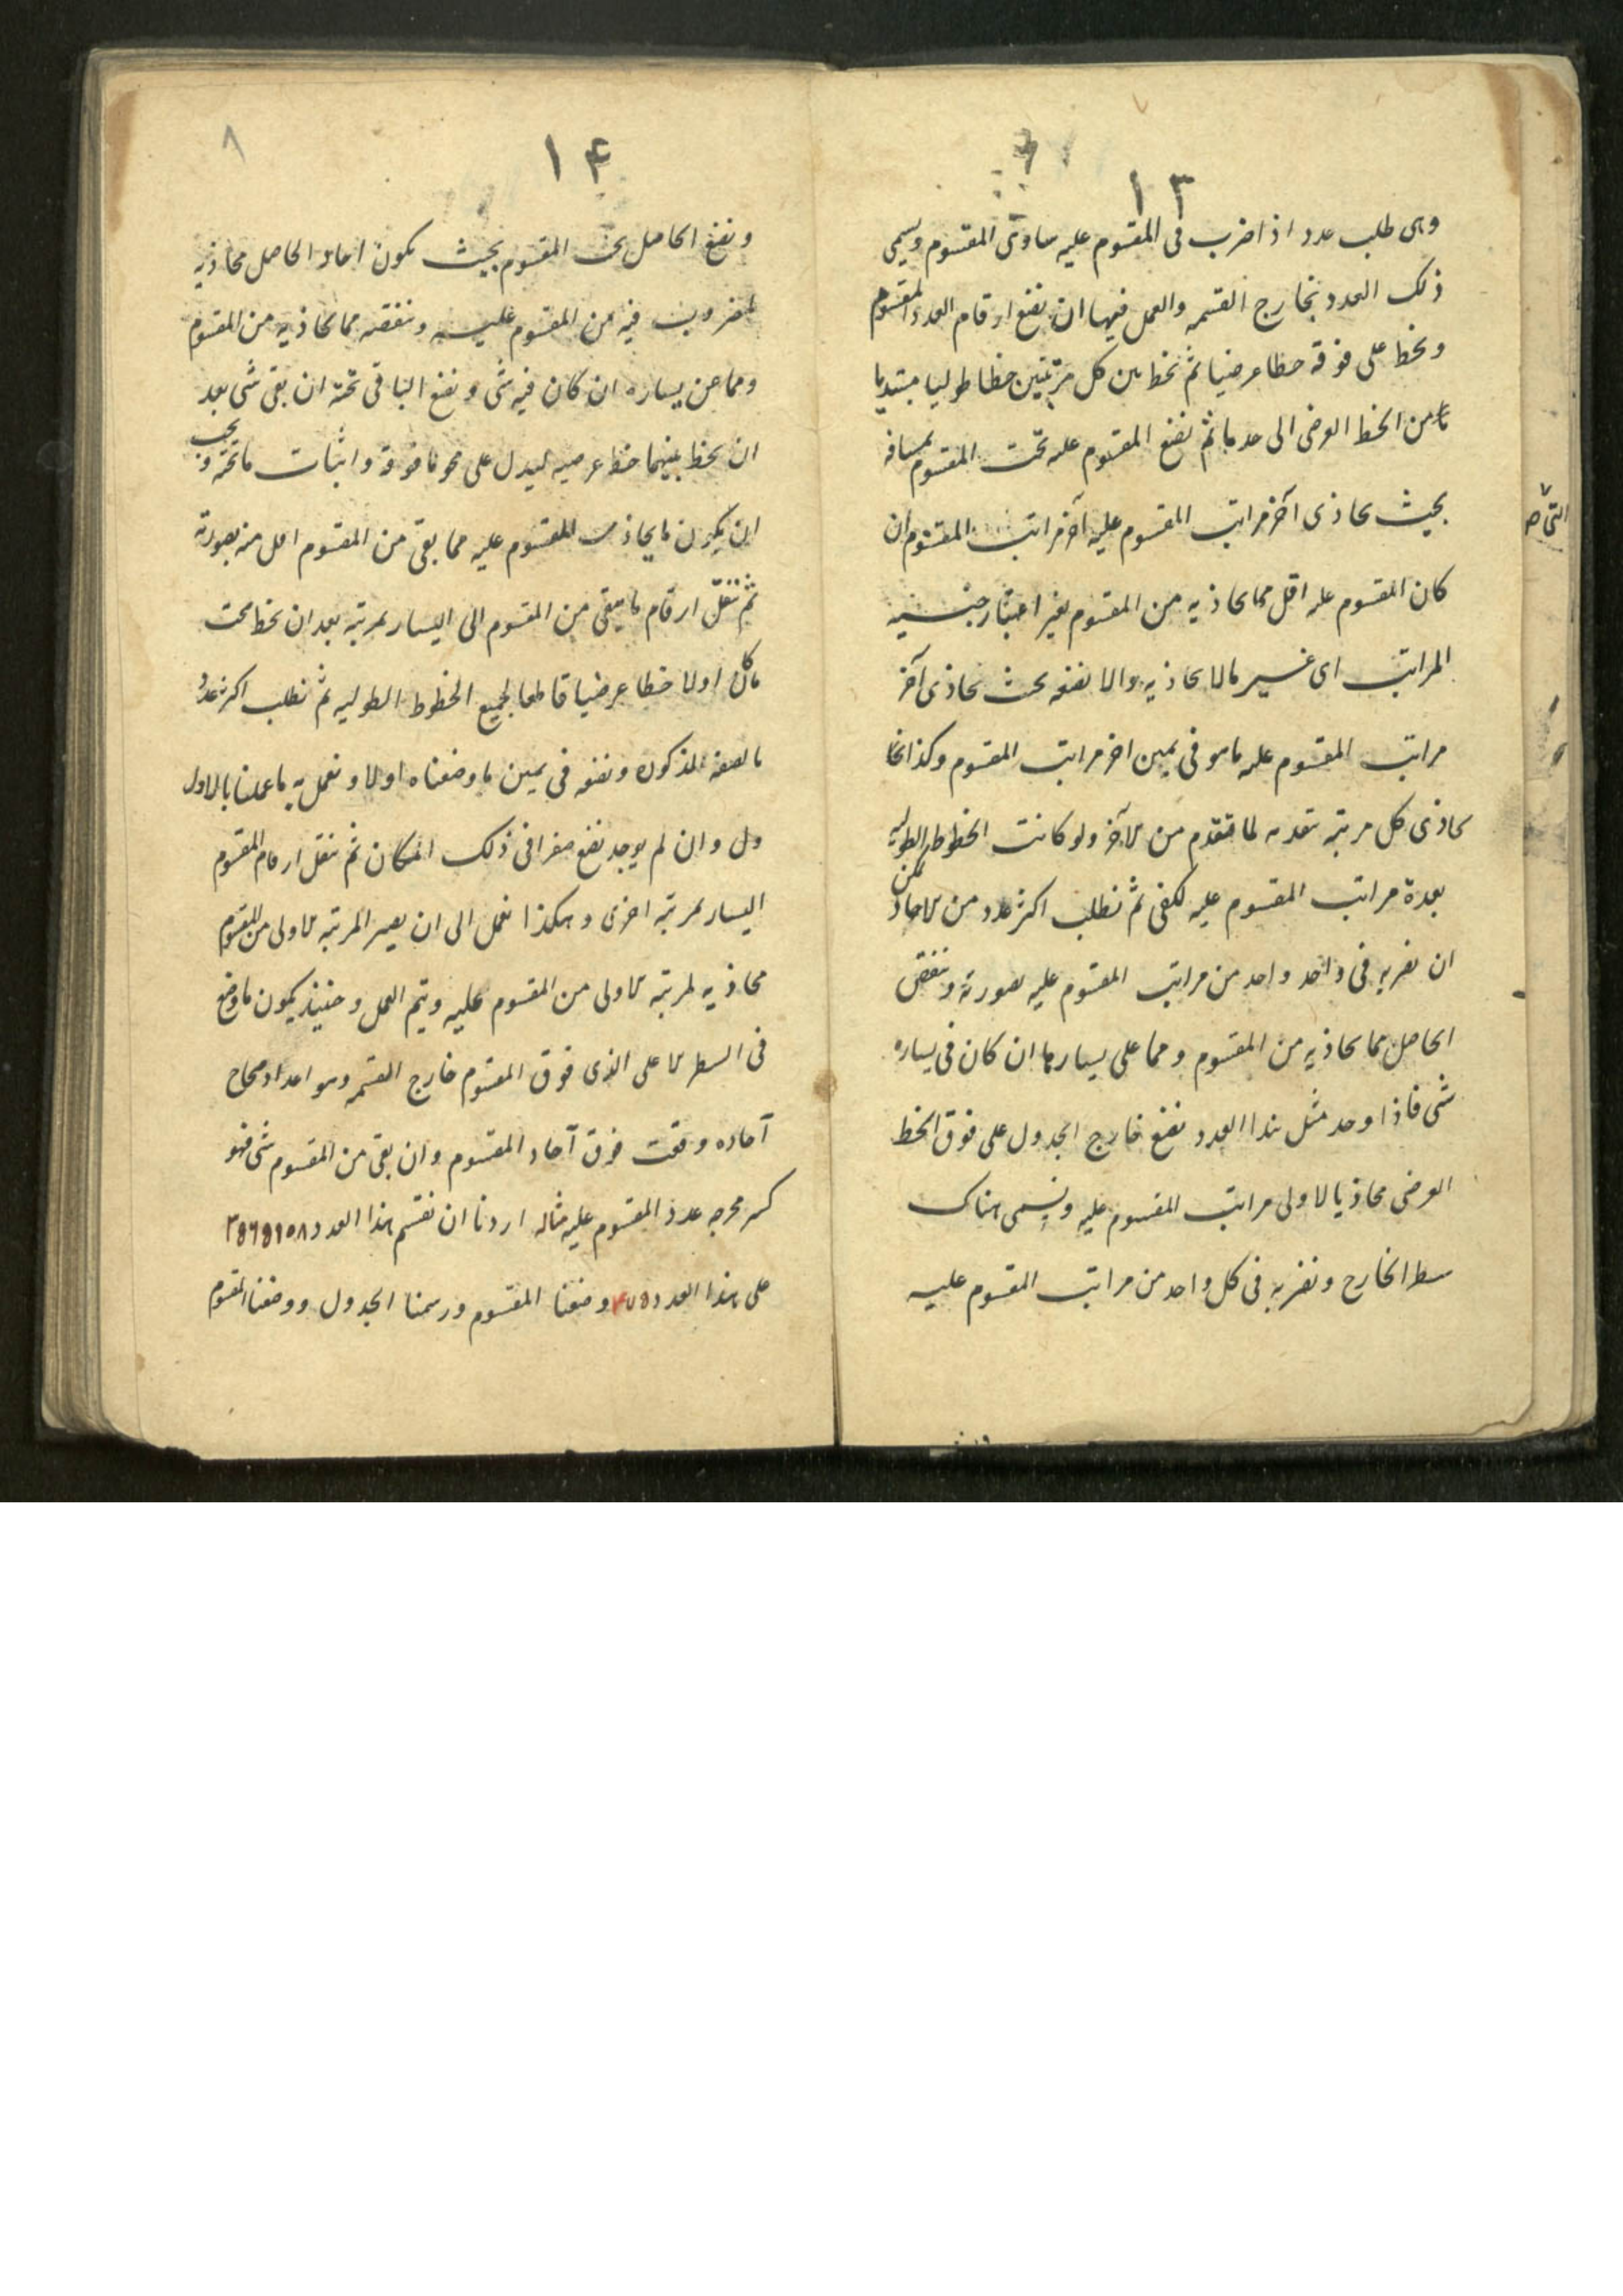 ١٣
وهى طلب عدد اذا ضرب فى المقسوم عليه ساوى المقسوم ويسمى
ذلك العدد بخارج القسمه والعمل فيها ان نضع ارقام العدد المقسوم
ونخط على فوقه خطا عرضيا ثم نخط بين كل مرتبتين خطا طوليا مبتديا
من الخط العرضى الى حد ما ثم نضع المقسوم عليه تحت المقسوم بمسافه
بحيث يحاذى آخر مراتب المقسوم عليه آخر مراتب المقسوم ان
كان المقسوم عليه اقل مما يحاذيه من المقسوم بغير اعتبار جنسيه
المراتب اى غير مالا يحاذيه والا نضعه بحيث يحاذى آخر
مراتب المقسوم عليه ما هو فى يمين اخر مراتب المقسوم وكذا
يحاذى كل مرتبه متقدمه لما تقدم من الآخر ولو كانت الخطوط الطوليه
بعدة مراتب المقسوم عليه لكفى ثم نطلب اكثر عدد من الآحاد يمكن
ان نضربه فى واحد واحد من مراتب المقسوم عليه بصورته وننقص
الحاصل مما يحاذيه من المقسوم ومما على يسارها ان كان فى يساره
شى فاذا وجد مثل هذا العدد نضع خارج الجدول على فوق الخط
العرضى محاذيا لاولى مراتب المقسوم عليه ويسمى هناك
سطر الخارج ونضربه فى كل واحد من مراتب المقسوم عليه
١٤
٨
ونضع الحاصل تحت المقسوم بحيث يكون احاد الحاصل محاذيه
لمضروب فيه من المقسوم عليه وننقصه مما يحاذيه من المقسوم
ومما عن يساره ان كان فيه شى ونضع الباقى تحته ان بقى شى بعد
ان نخط بينهما خط عرضيه ليدل على محو ما فوقه واثبات ما تحته ويجب
ان يكون ما يحاذى المقسوم عليه مما بقى من المقسوم اقل منه بصورته
ثم ننقل ارقام ما يبقى من المقسوم الى اليسار بمرتبه بعد ان نخط تحت
ما كان اولا خطا عرضيا قاطعا لجميع الخطوط الطوليه ثم نطلب اكثر عدد
بالصفه المذكوره ونضعه فى يمين ما وضعناه اولا ونعمل به ما عملنا بالاول
ول وان لم يوجد نضع صفرا فى ذلك المكان ثم ننقل ارقام المقسوم
اليسار بمرتبه اخرى وهكذا نعمل الى ان يصير المرتبه الاولى من المقسوم
محاذيه لمرتبه الاولى من المقسوم عليه ويتم العمل وحينئذ يكون ما وضع
فى السطر الاعلى الذى فوق المقسوم خارج القسمه وهو اعداد صحاح
آحاده وقعت فوق آحاد المقسوم وان بقى من المقسوم شى فهو
كسر مخرجه عدد المقسوم عليه مثاله اردنا ان نقسم هذا العدد
على هذا العدد ٤٧٥ وضعنا المقسوم ورسمنا الجدول ووضعنا المقسوم